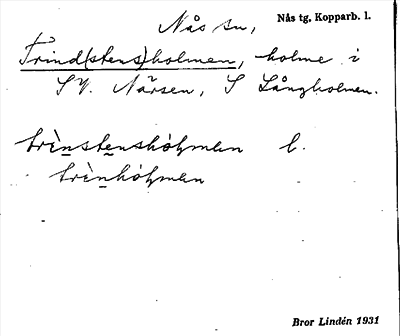 Nås sn, Nås tg, Kopparb. l.
Trind(stens)holmen, holme i
SV. Närsen, S Långholmen.
trènstenshòɫmen l.
trènhòɫmen
Bror Lindén 1931